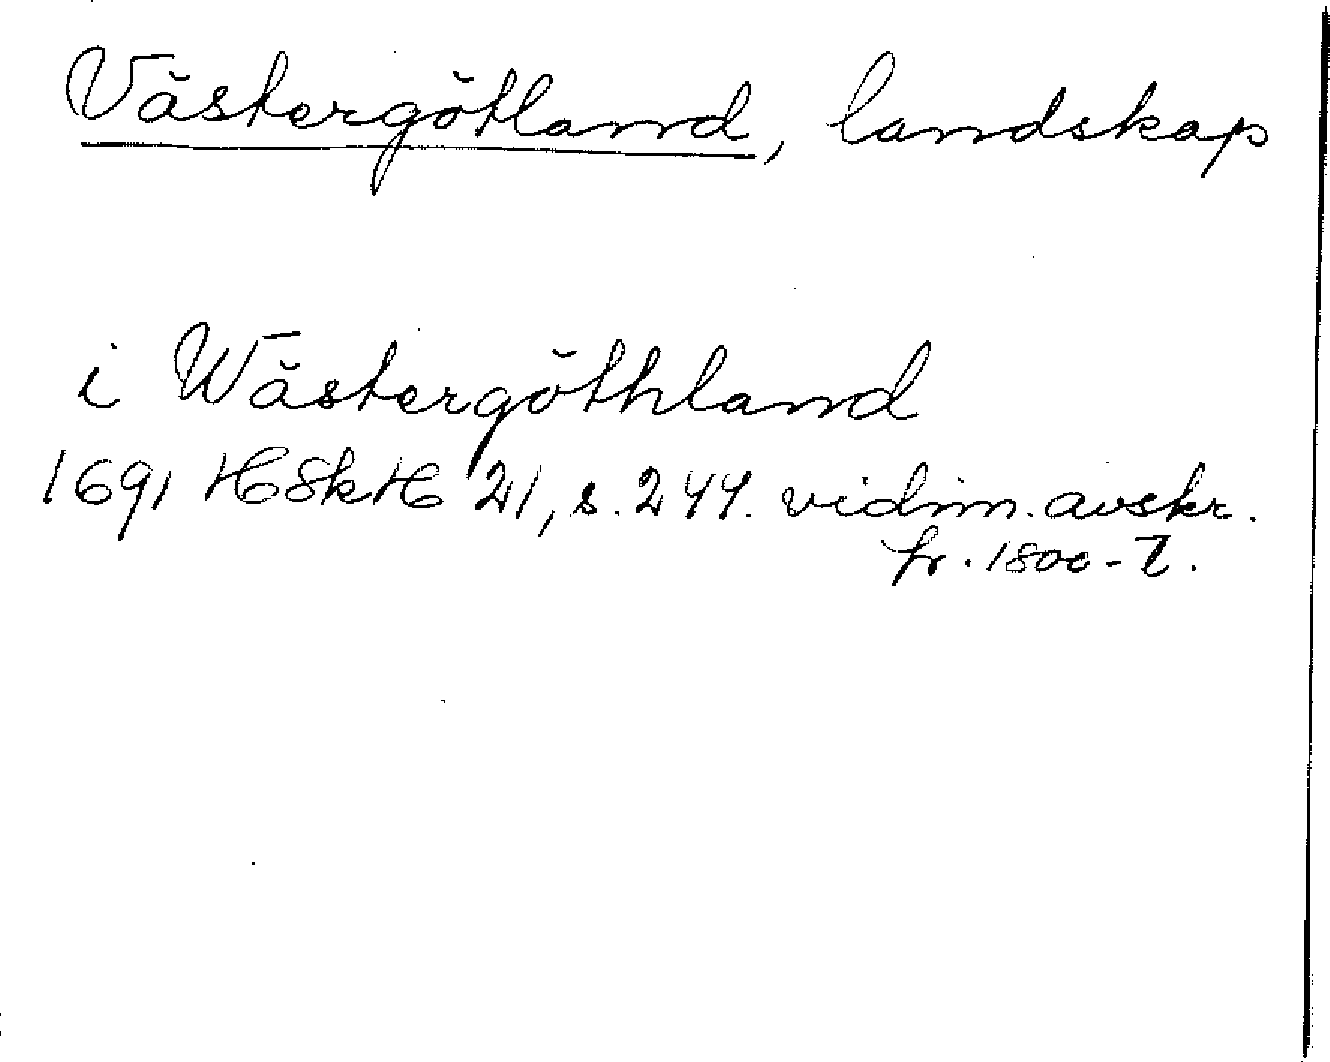 Västergötland, landskap
i Wästergöthland
1691 HSkH 21, s. 244. vidim. avskr.
fr. 1800-t.